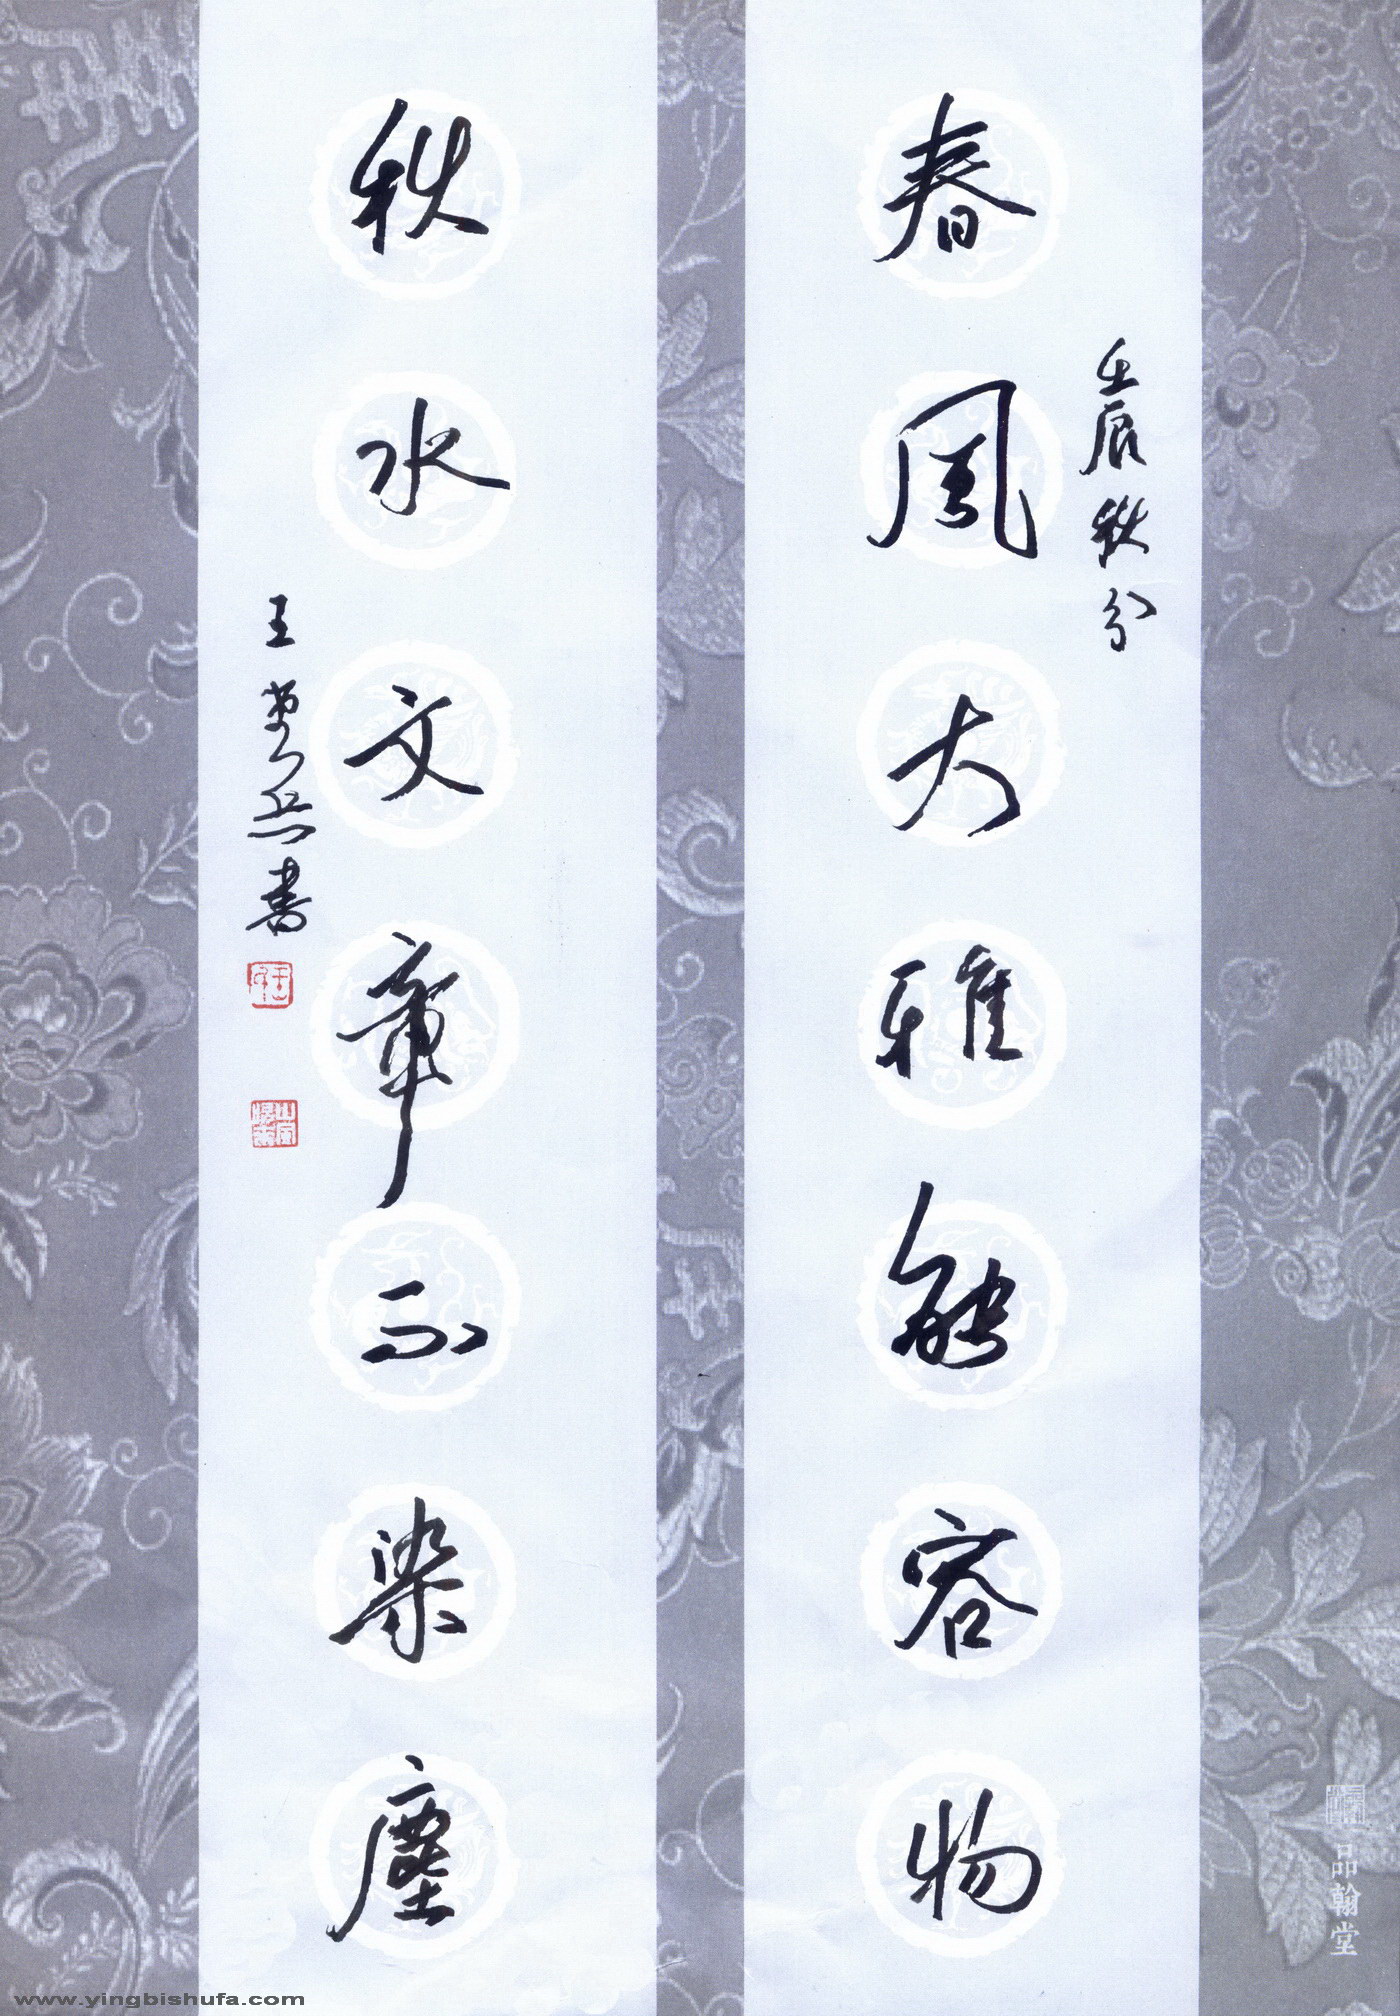 春风大雅能容物
壬辰秋分
秋水文章不染塵
王
書
品翰堂
www.yingbishufa.com